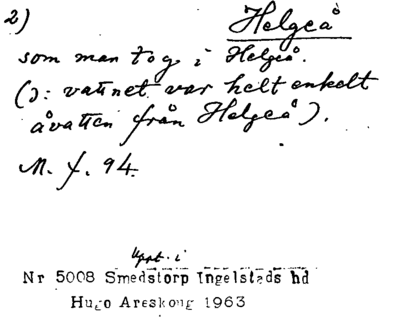 2) Helgeå
som man tog i Helgeå.
(ɔ: vattnet var helt enkelt
åvatten från Helgeå).
M. f. 94.
Uppt. i
Nr 5008 Smedstorp Ingelstads hd
Hugo Areskoug 1963